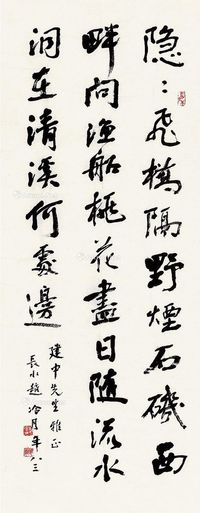 隐：飛橋隔野煙石磯西
畔问渔船桃花盡日随流水
洞在清溪何處邊
建中先生雅正
長水趙冷月年八三